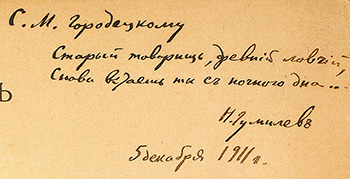 С. М. Городецкому
Старый товарищъ, древній ловчій,
Снова встаешь ты съ ночного дна...
Ь
Н. Гумилевъ
5 декабря 1911 г.